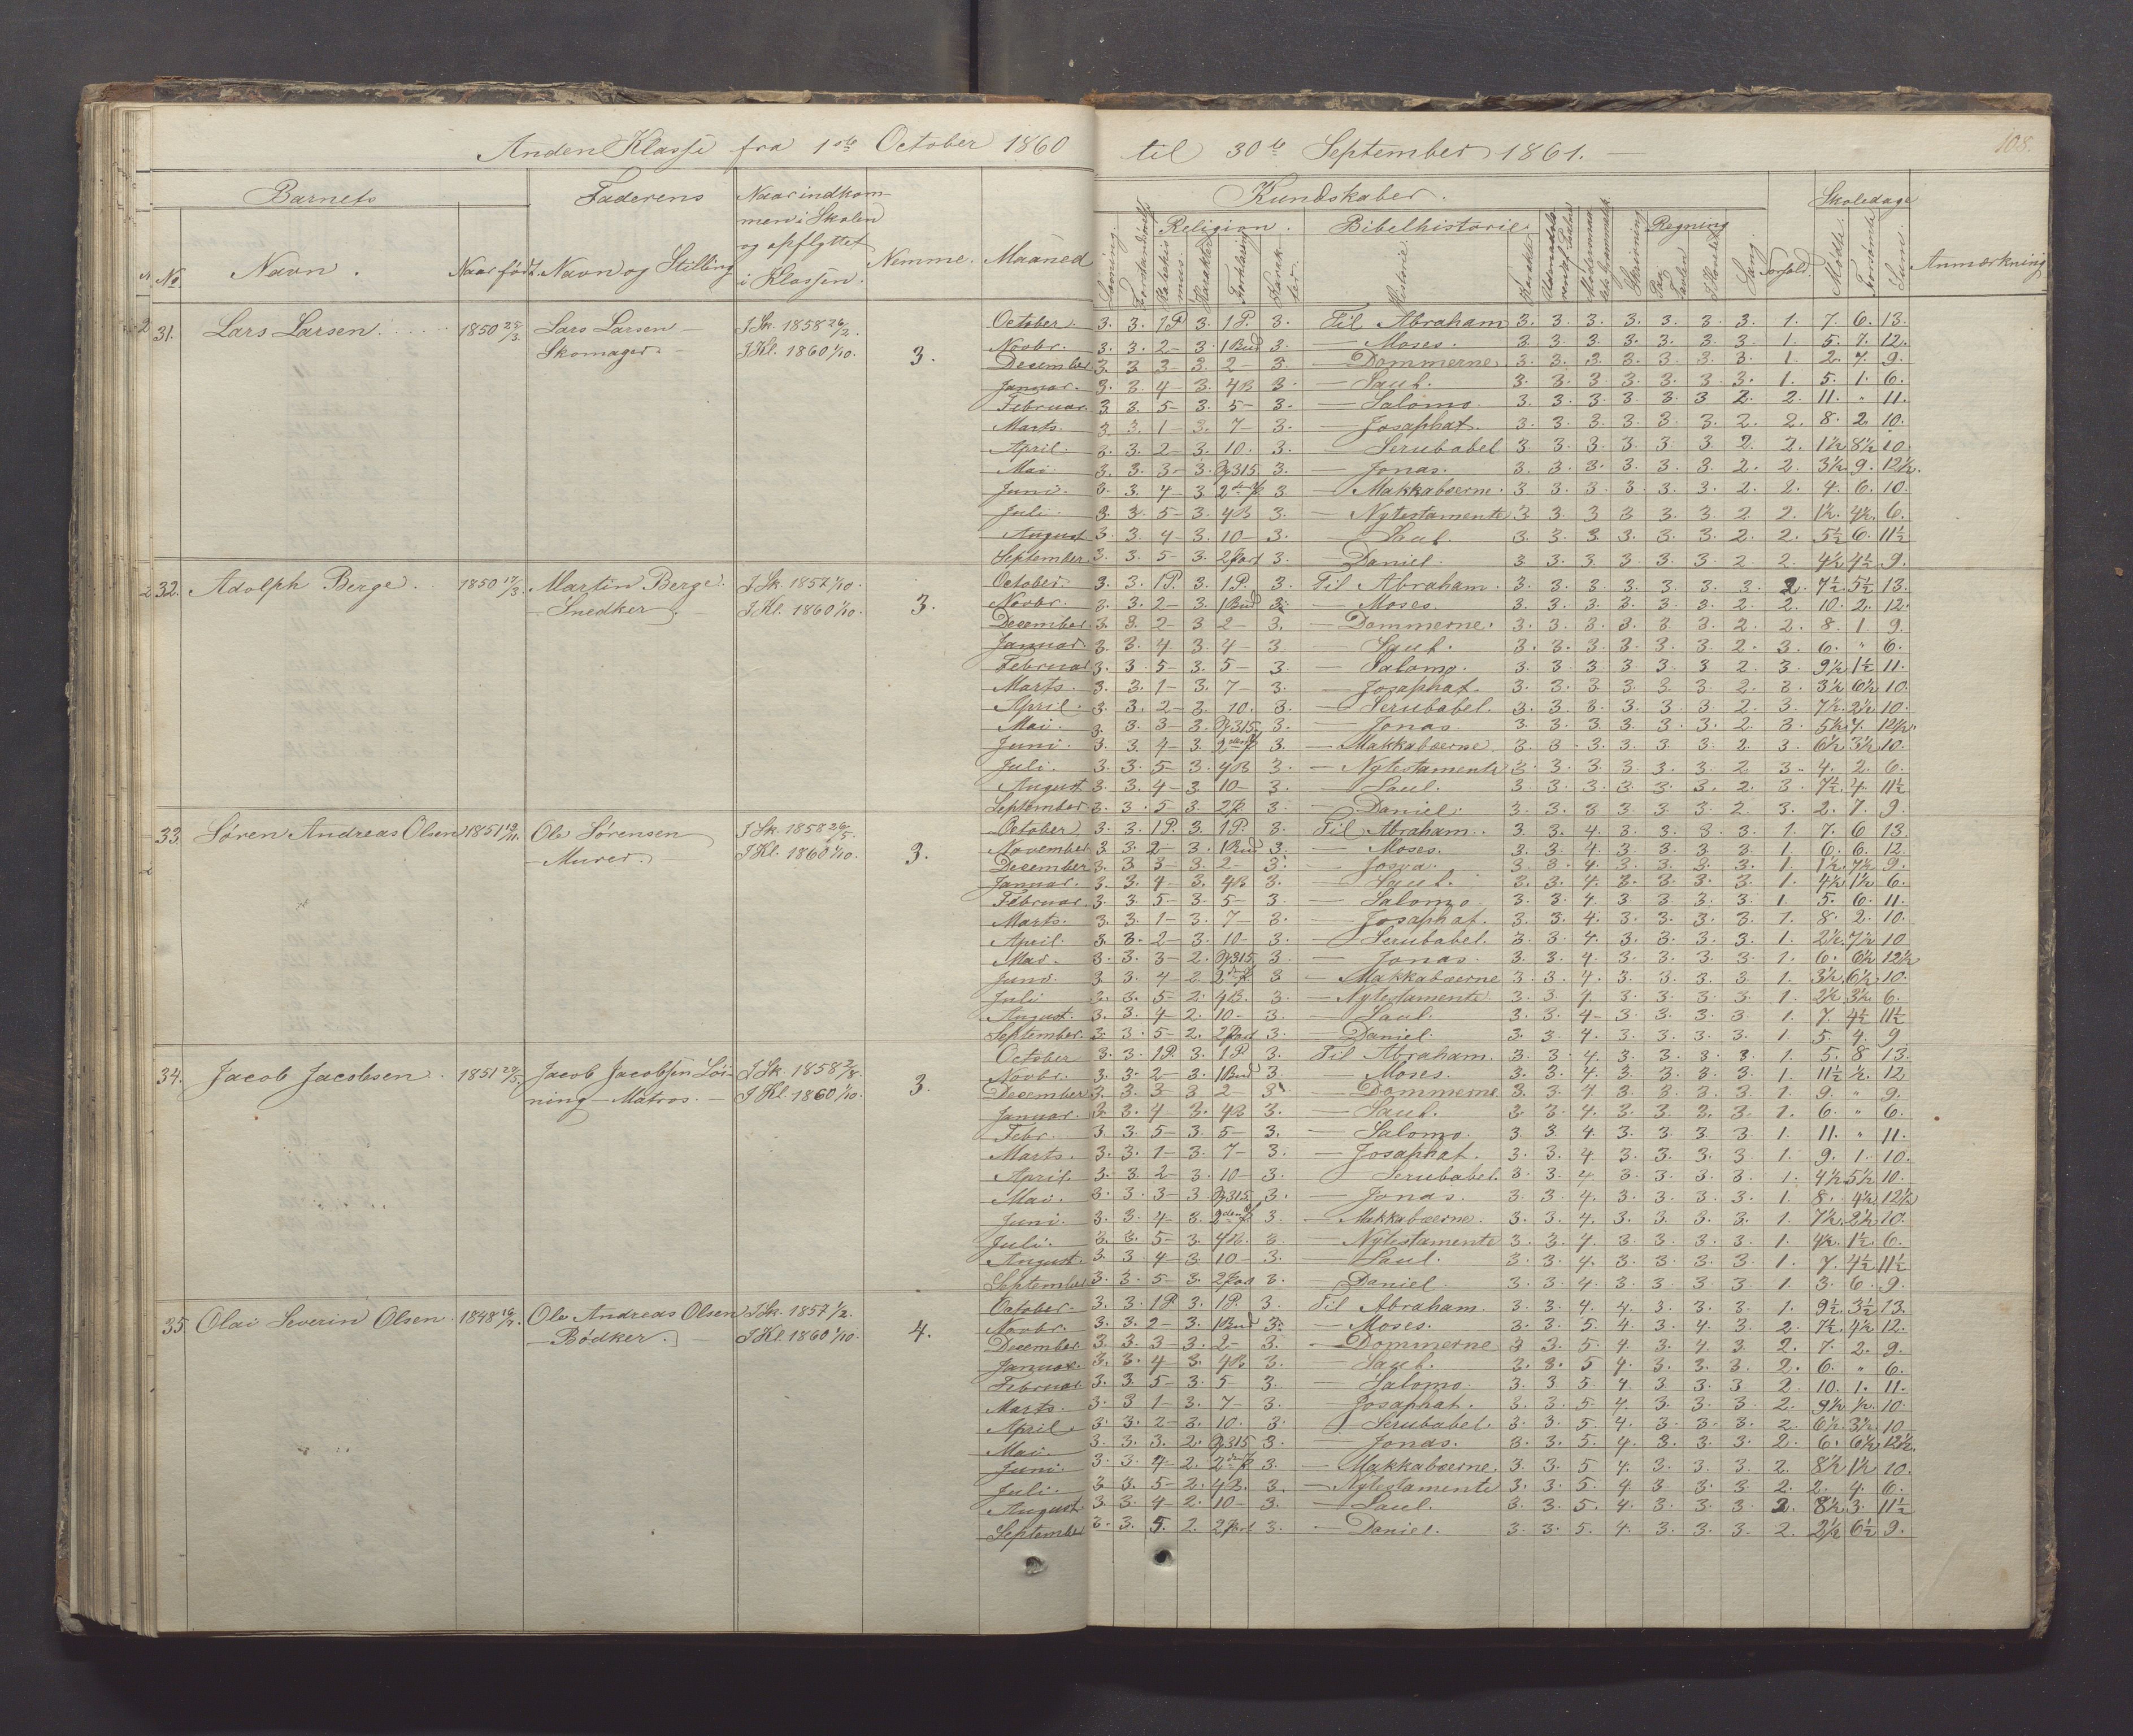 108.
Anden Klasse fra 1ste October 1860 til 30te September 1861.
Barnets Faderens Naar indkom- Kundskaber. Skoledage
men i Skolen Religion. Bibelhistorie Regning
og opflyttet
No Navn. Naar født. Navn og Stilling i Klassen. Nemme. Maaned Historie. Skrivning Sang Forhold. Mødte. Forsømte Sum. Anmærkning
31. Lars Larsen. 1850 25/3. Lars Larsen I Sk. 1858 26/2. October. 3. 3. 1 P. 3. 1 P. 3. Til Abraham 3. 3. 3. 3. 3. 3. 3. 1. 7. 6. 13.
Skomager. I Kl. 1860 1/10. 3. Novbr. 3. 3. 2 - 3. 1 Bud 3. — Moses. 3. 3. 3. 3. 3. 3. 3. 1. 5. 7. 12.
December 3. 3. 3 - 3. 2 - 3. — Dommerne. 3. 3. 3. 3. 3. 3. 3. 1. 2. 7. 9.
Januar. 3. 3. 4 - 3. 4B 3. — Saul. 3. 3. 3. 3. 3. 3. 3. 1. 5. 1. 6.
Februar. 3. 3. 5 - 3. 5 - 3. — Salomo. 3. 3. 3. 3. 3. 3. 2. 2. 11. " 11.
Marts. 3. 3. 1 - 3. 7 - 3. — Josaphat. 3. 3. 3. 3. 3. 3. 2. 2. 8. 2. 10.
April. 3. 3. 2 - 3. 10. 3. — Serubabel 3. 3. 3. 3. 3. 3. 2. 2. 1½ 8½ 10.
Mai. 3. 3. 3 - 3. 315. 3. — Jonas. 3. 3. 3. 3. 3. 3. 2. 2. 3½ 9. 12½.
Juni. 3. 3. 4 - 3. 3. — Makkabæerne. 3. 3. 3. 3. 3. 3. 2. 2. 4. 6. 10.
Juli. 3. 3. 5 - 3. 4B 3. — Nytestamente 3. 3. 3. 3. 3. 3. 2. 2. 1½. 4½. 6.
August 3. 3. 4 - 3. 10 - 3. — Saul. 3. 3. 3. 3. 3. 3. 2. 2. 5½ 6. 11½
September 3. 3. 5 - 3. 3. — Daniel. 3. 3. 3. 3. 3. 3. 2. 2. 4½ 4½ 9.
32. Adolph Berge. 1850 17/3. Martin Berge. I Sk. 1857 1/10. October 3. 3. 1 P. 3. 1 P. 3. Til Abraham. 3. 3. 3. 3. 3. 3. 3. 2. 7½ 5½ 13.
Snedker. I Kl. 1860 1/10. 3. Novbr. 3. 3. 2 - 3. 1 Bud 3. — Moses. 3. 3. 3. 3. 3. 3. 2. 2. 10. 2. 12.
December. 3. 3. 2 - 3 2 - 3. — Dommerne. 3. 3. 3. 3. 3. 3. 2. 2. 8. 1. 9.
Januar. 3. 3. 4 3. 4 - 3 — Saul. 3. 3. 3. 3. 3. 3. 2. 3. 6. " 6.
Februar 3. 3. 5 - 3. 5 - 3. — Salomo. 3. 3. 3. 3. 3. 3. 2. 3. 9½ 1½ 11.
Marts. 3. 3. 1 - 3. 7 - 3. — Josaphat. 3. 3. 3. 3. 3. 3. 2. 3. 3½ 6½ 10.
April. 3. 3. 2 - 3. 10. 3. — Serubabel. 3. 3. 3. 3. 3. 3. 2. 3. 7½. 2½ 10.
Mai. 3. 3. 3 - 3. 315. 3. — Jonas. 3. 3. 3. 3. 3. 3. 2. 3. 5½ 7. 12½.
Juni. 3. 3. 4 - 3. 3. — Makkabæerne. 3. 3. 3. 3. 3. 3. 2. 3. 6½ 3½ 10.
Juli. 3. 3. 5 - 3. 4B 3. — Nytestamente 3. 3. 3. 3. 3. 3. 2. 3. 4. 2. 6.
August 3. 3. 4 - 3 10 - 3. — Saul. 3. 3. 3. 3. 3. 3. 2. 3. 7½ 4. 11½
September 3. 3. 5 3 3. — Daniel. 3. 3. 3 3 3 3 2. 3. 2. 7. 9.
33. Søren Andreas Olsen 1851 19/11. Ole Sørensen I Sk. 1858 26/5. October 3. 3. 1 P. 3. 1 P. 3. Til Abraham. 3. 3. 4. 3. 3. 3. 3. 1. 7. 6 13.
Murer. I Kl. 1860 1/10. 3. November 3. 3. 2 - 3. 1 Bud 3. — Moses. 3. 3. 4. 3. 3. 3. 3. 1. 6. 6. 12.
December 3. 3. 3 - 3. 2 - 3. — Josva. 3. 3. 4. 3. 3. 3. 3. 1. 1½. 7½ 9.
Januar. 3. 3. 4 - 3. 4B 3. — Saul. 3. 3. 4. 3. 3. 3. 3. 1. 4½ 1½ 6.
Februar. 3. 3. 5 - 3. 5 - 3. — Salomo. 3. 3. 4. 3 3. 3. 3. 1. 5. 6. 11.
Marts. 3. 3. 1 - 3. 7 - 3. — Josaphat. 3. 3. 4. 3. 3. 3. 3. 1. 8. 2. 10.
April. 3. 3. 2 - 3. 10 - 3. — Serubabel. 3. 3. 4. 3. 3. 3. 3. 1. 2½. 7½ 10
Mai. 3. 3. 3 - 2. 315. 3. — Jonas. 3. 3. 4. 3. 3. 3. 3. 1. 6. 6½ 12½
Juni. 3. 3. 4 - 2. 3 — Makkabæerne 3. 3. 4. 3. 3. 3. 3. 1. 3½ 6½ 10.
Juli 3. 3. 5 - 2. 4B. 3. — Nytestamente 3. 3. 4. 3. 3. 3. 3. 1. 2½ 3½. 6.
August. 3. 3. 4 - 2. 10 - 3. — Saul. 3. 3. 4 - 3. 3. 3. 3. 1. 7. 4½ 11½
September. 3. 3. 5 - 2. 3. — Daniel. 3. 3. 4. 3. 3. 3. 3. 1. 5. 4. 9
34. Jacob Jacobsen. 1851 29/5. Jacob Jacobsen Løi- I Sk. 1858 2/8. October 3. 3. 1 P. 3. 1 P. 3. Til Abraham. 3. 3. 4. 3. 3. 3. 3. 1. 5. 8 13.
ning — Matros. I Kl. 1860 1/10. 3. Novbr. 3. 3. 2 - 3. 1 Bud 3. — Moses. 3. 3. 4. 3. 3. 3. 3. 1. 11½ ½. 12
December 3. 3. 3 3 2 3. — Dommerne. 3. 3. 4 3. 3. 3. 3. 1. 9. " 9.
Januar. 3. 3. 4 - 3. 4B 3. — Saul. 3. 3. 4. 3. 3. 3. 3. 1. 6. " 6.
Febr. 3. 3. 5 - 3. 5 - 3. — Salomo. 3. 3. 4. 3. 3. 3. 3. 1. 11. " 11.
Marts. 3. 3. 1 - 3. 7 - 3. — Josaphat. 3. 3. 4. 3. 3. 3. 3. 1. 9. 1. 10.
April. 3. 3. 2 - 3. 10 - 3. — Serubabel. 3. 3. 4 3 3. 3. 3. 1. 4½ 5½ 10.
Mai. 3. 3. 3 - 3. 315. 3. — Jonas. 3. 3. 4. 3. 3. 3. 3. 1. 8. 4½ 12½
Juni. 3. 3. 4 - 3. 3. — Makkabæerne. 3. 3. 4. 3. 3. 3. 3. 1. 7½. 2½ 10.
Juli. 3. 3. 5 - 3. 4B. 3 — Nytestamente 3. 3. 4. 3. 3. 3. 3. 1. 4½. 1½. 6.
August. 3. 3. 4 - 3. 10 - 3. — Saul. 3. 3. 4. 3. 3. 3. 3. 1. 7. 4½ 11½
September 3. 3. 5 - 3. 3. — Daniel. 3. 3. 4. 3. 3. 3. 3. 1. 3. 6. 9.
35. Olai Severin Olsen. 1848 16/7. Ole Andreas Olsen I Sk. 1857 1/2. October. 3. 3. 1 P. 3. 1 P. 3. Til Abraham. 3. 3. 4. 4. 3. 3. 3. 1. 9½. 3½ 13.
Bødker. I Kl. 1860 1/10. 4. Novbr. 3. 3. 2 - 3. 1 Bud 3. — Moses. 3. 3. 5. 4. 3. 4. 3. 2. 7½. 4½ 12.
December. 3. 3. 3 - 3. 2 - 3. — Dommerne 3. 3. 5. 4. 3. 4. 3. 2. 7. 2. 9.
Januar. 3. 3. 4 3. 4B 3. — Saul. 3. 3. 5 4. 3. 3. 3. 2. 6. " 6.
Februar. 3. 3. 5 - 3. 5 - 3. — Salomo. 3. 3. 5. 4. 3. 3. 3 2. 10. 1. 11.
Marts. 3. 3 1 - 3. 7 - 3. — Josaphat. 3. 3. 5. 4. 3. 3. 3 2. 9½ ½. 10.
April. 3. 3. 2 - 3. 10. 3. — Serubabel. 3. 3. 5. 4. 3. 3. 3. 2. 6½. 3½. 10
Mai. 3. 3. 3. 2. 315 3. — Jonas. 3. 3. 5. 4. 3. 3. 3. 2. 6. 6½ 12½.
Juni. 3. 3. 4 - 2. 3. — Makkabæerne. 3. 3. 5 4. 3. 3. 3. 2. 8½ 1½ 10.
Juli. 3. 3. 5 - 2. 4B. 3. — Nytestamente 3. 3. 5. 4. 3 3. 3 2. 2. 4. 6.
August. 3. 3. 4 - 2. 10 - 3. — Saul. 3. 3. 5. 4. 3. 3. 3 2. 8½. 3. 11½
September 3. 3. 5. 2. 3. — Daniel. 3. 3. 5. 4. 3. 3. 3. 2. 2½ 6½ 9.